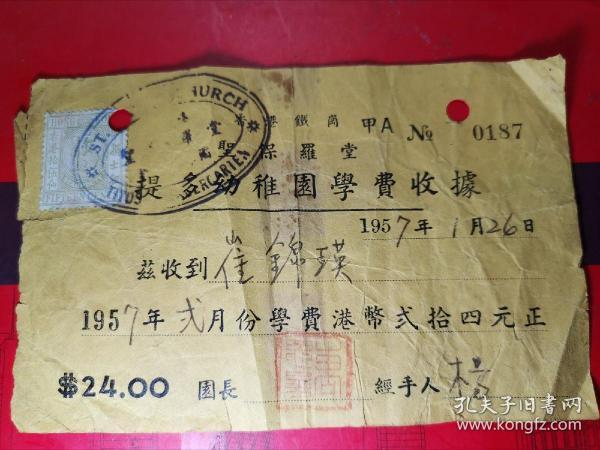 ST. CHURCH
香港鐵崗 甲A № 0187
聖保羅堂
提多幼稚園學費收據
1957年1月26日
茲收到崔錦瑛
1957年弍月份學費港幣弍拾四元正
$24.00 園長 經手人 楊
孔夫子旧书网
www.kongfz.com